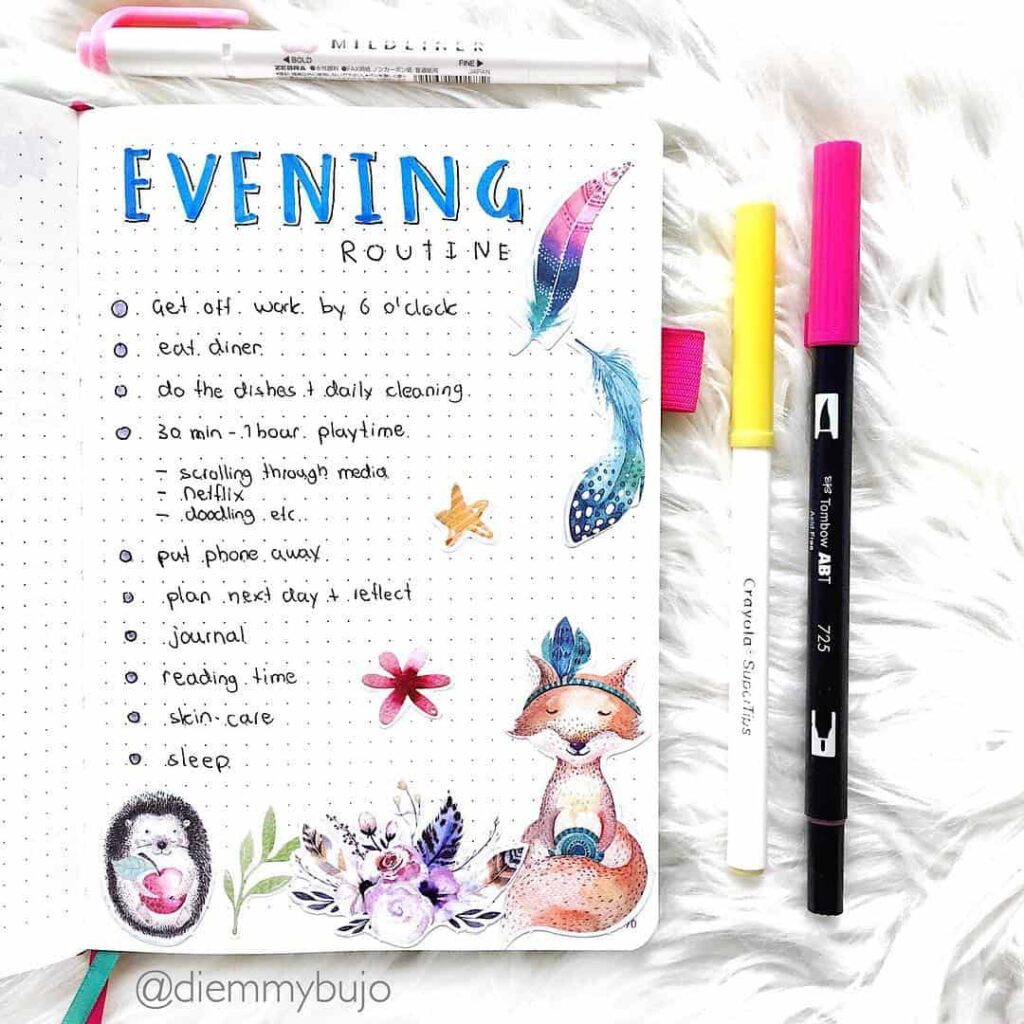 MILDLINER
◀BOLD
FINE▶
ZEBRA
JAPAN
EVENING
ROUTINE
Get off work by 6 o'clock
eat diner
do the dishes + daily cleaning
30 min - 1 hour playtime
- scrolling through media
- netflix
- doodling etc.
put phone away
plan next day + reflect
journal
reading time
skin-care
sleep
70
Crayola SuperTips
Tombow ABT
Acid Free
725
@diemmybujo